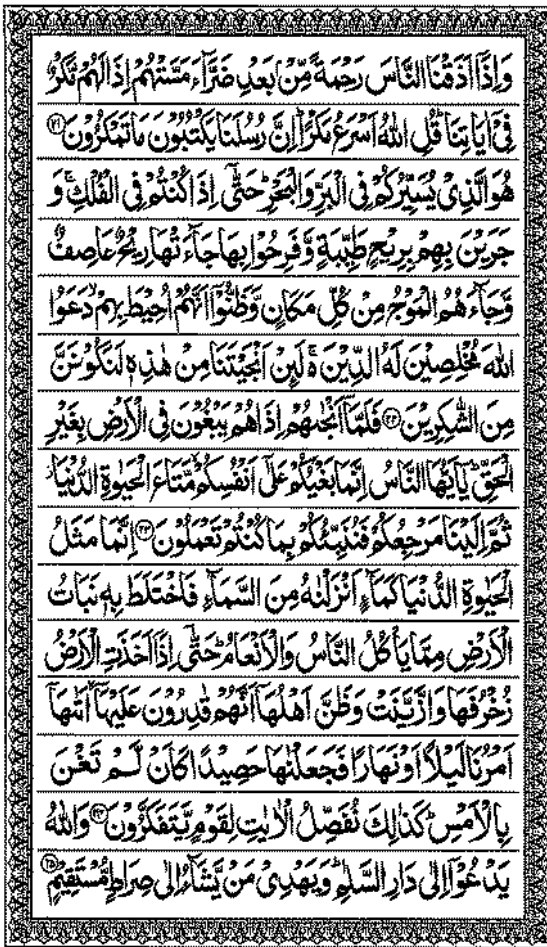 وَاِذَاۤ اَذَقْنَا النَّاسَ رَحْمَةً مِّنْۢ بَعْدِ ضَرَّآءَ مَسَّتْهُمْ اِذَا لَهُمْ مَّكْرٌ
فِیْۤ اٰیَاتِنَاؕ قُلِ اللّٰهُ اَسْرَعُ مَكْرًاؕ اِنَّ رُسُلَنَا یَكْتُبُوْنَ مَا تَمْكُرُوْنَ ﴿۲۱﴾
هُوَ الَّذِیْ یُسَیِّرُكُمْ فِی الْبَرِّ وَالْبَحْرِؕ حَتّٰۤی اِذَا كُنْتُمْ فِی الْفُلْكِۚ وَ
جَرَیْنَ بِهِمْ بِرِیْحٍ طَیِّبَةٍ وَّفَرِحُوْا بِهَا جَآءَتْهَا رِیْحٌ عَاصِفٌ
وَّجَآءَهُمُ الْمَوْجُ مِنْ كُلِّ مَكَانٍ وَّظَنُّوْۤا اَنَّهُمْ اُحِیْطَ بِهِمْۙ دَعَوُا
اللّٰهَ مُخْلِصِیْنَ لَهُ الدِّیْنَ ۚ۬ لَىِٕنْ اَنْجَیْتَنَا مِنْ هٰذِهٖ لَنَكُوْنَنَّ
مِنَ الشّٰكِرِیْنَ ﴿۲۲﴾ فَلَمَّاۤ اَنْجٰىهُمْ اِذَا هُمْ یَبْغُوْنَ فِی الْاَرْضِ بِغَیْرِ
الْحَقِّؕ یٰۤاَیُّهَا النَّاسُ اِنَّمَا بَغْیُكُمْ عَلٰۤی اَنْفُسِكُمْۙ مَّتَاعَ الْحَیٰوةِ الدُّنْیَا٘
ثُمَّ اِلَیْنَا مَرْجِعُكُمْ فَنُنَبِّئُكُمْ بِمَا كُنْتُمْ تَعْمَلُوْنَ ﴿۲۳﴾ اِنَّمَا مَثَلُ
الْحَیٰوةِ الدُّنْیَا كَمَآءٍ اَنْزَلْنٰهُ مِنَ السَّمَآءِ فَاخْتَلَطَ بِهٖ نَبَاتُ
الْاَرْضِ مِمَّا یَاْكُلُ النَّاسُ وَالْاَنْعَامُؕ حَتّٰۤی اِذَاۤ اَخَذَتِ الْاَرْضُ
زُخْرُفَهَا وَازَّیَّنَتْ وَظَنَّ اَهْلُهَاۤ اَنَّهُمْ قٰدِرُوْنَ عَلَیْهَاۤۙ اَتٰىهَاۤ
اَمْرُنَا لَیْلًا اَوْ نَهَارًا فَجَعَلْنٰهَا حَصِیْدًا كَاَنْ لَّمْ تَغْنَ
بِالْاَمْسِؕ كَذٰلِكَ نُفَصِّلُ الْاٰیٰتِ لِقَوْمٍ یَّتَفَكَّرُوْنَ ﴿۲۴﴾ وَاللّٰهُ
یَدْعُوْۤا اِلٰی دَارِ السَّلٰمِؕ وَیَهْدِیْ مَنْ یَّشَآءُ اِلٰی صِرَاطٍ مُّسْتَقِیْمٍ ﴿۲۵﴾